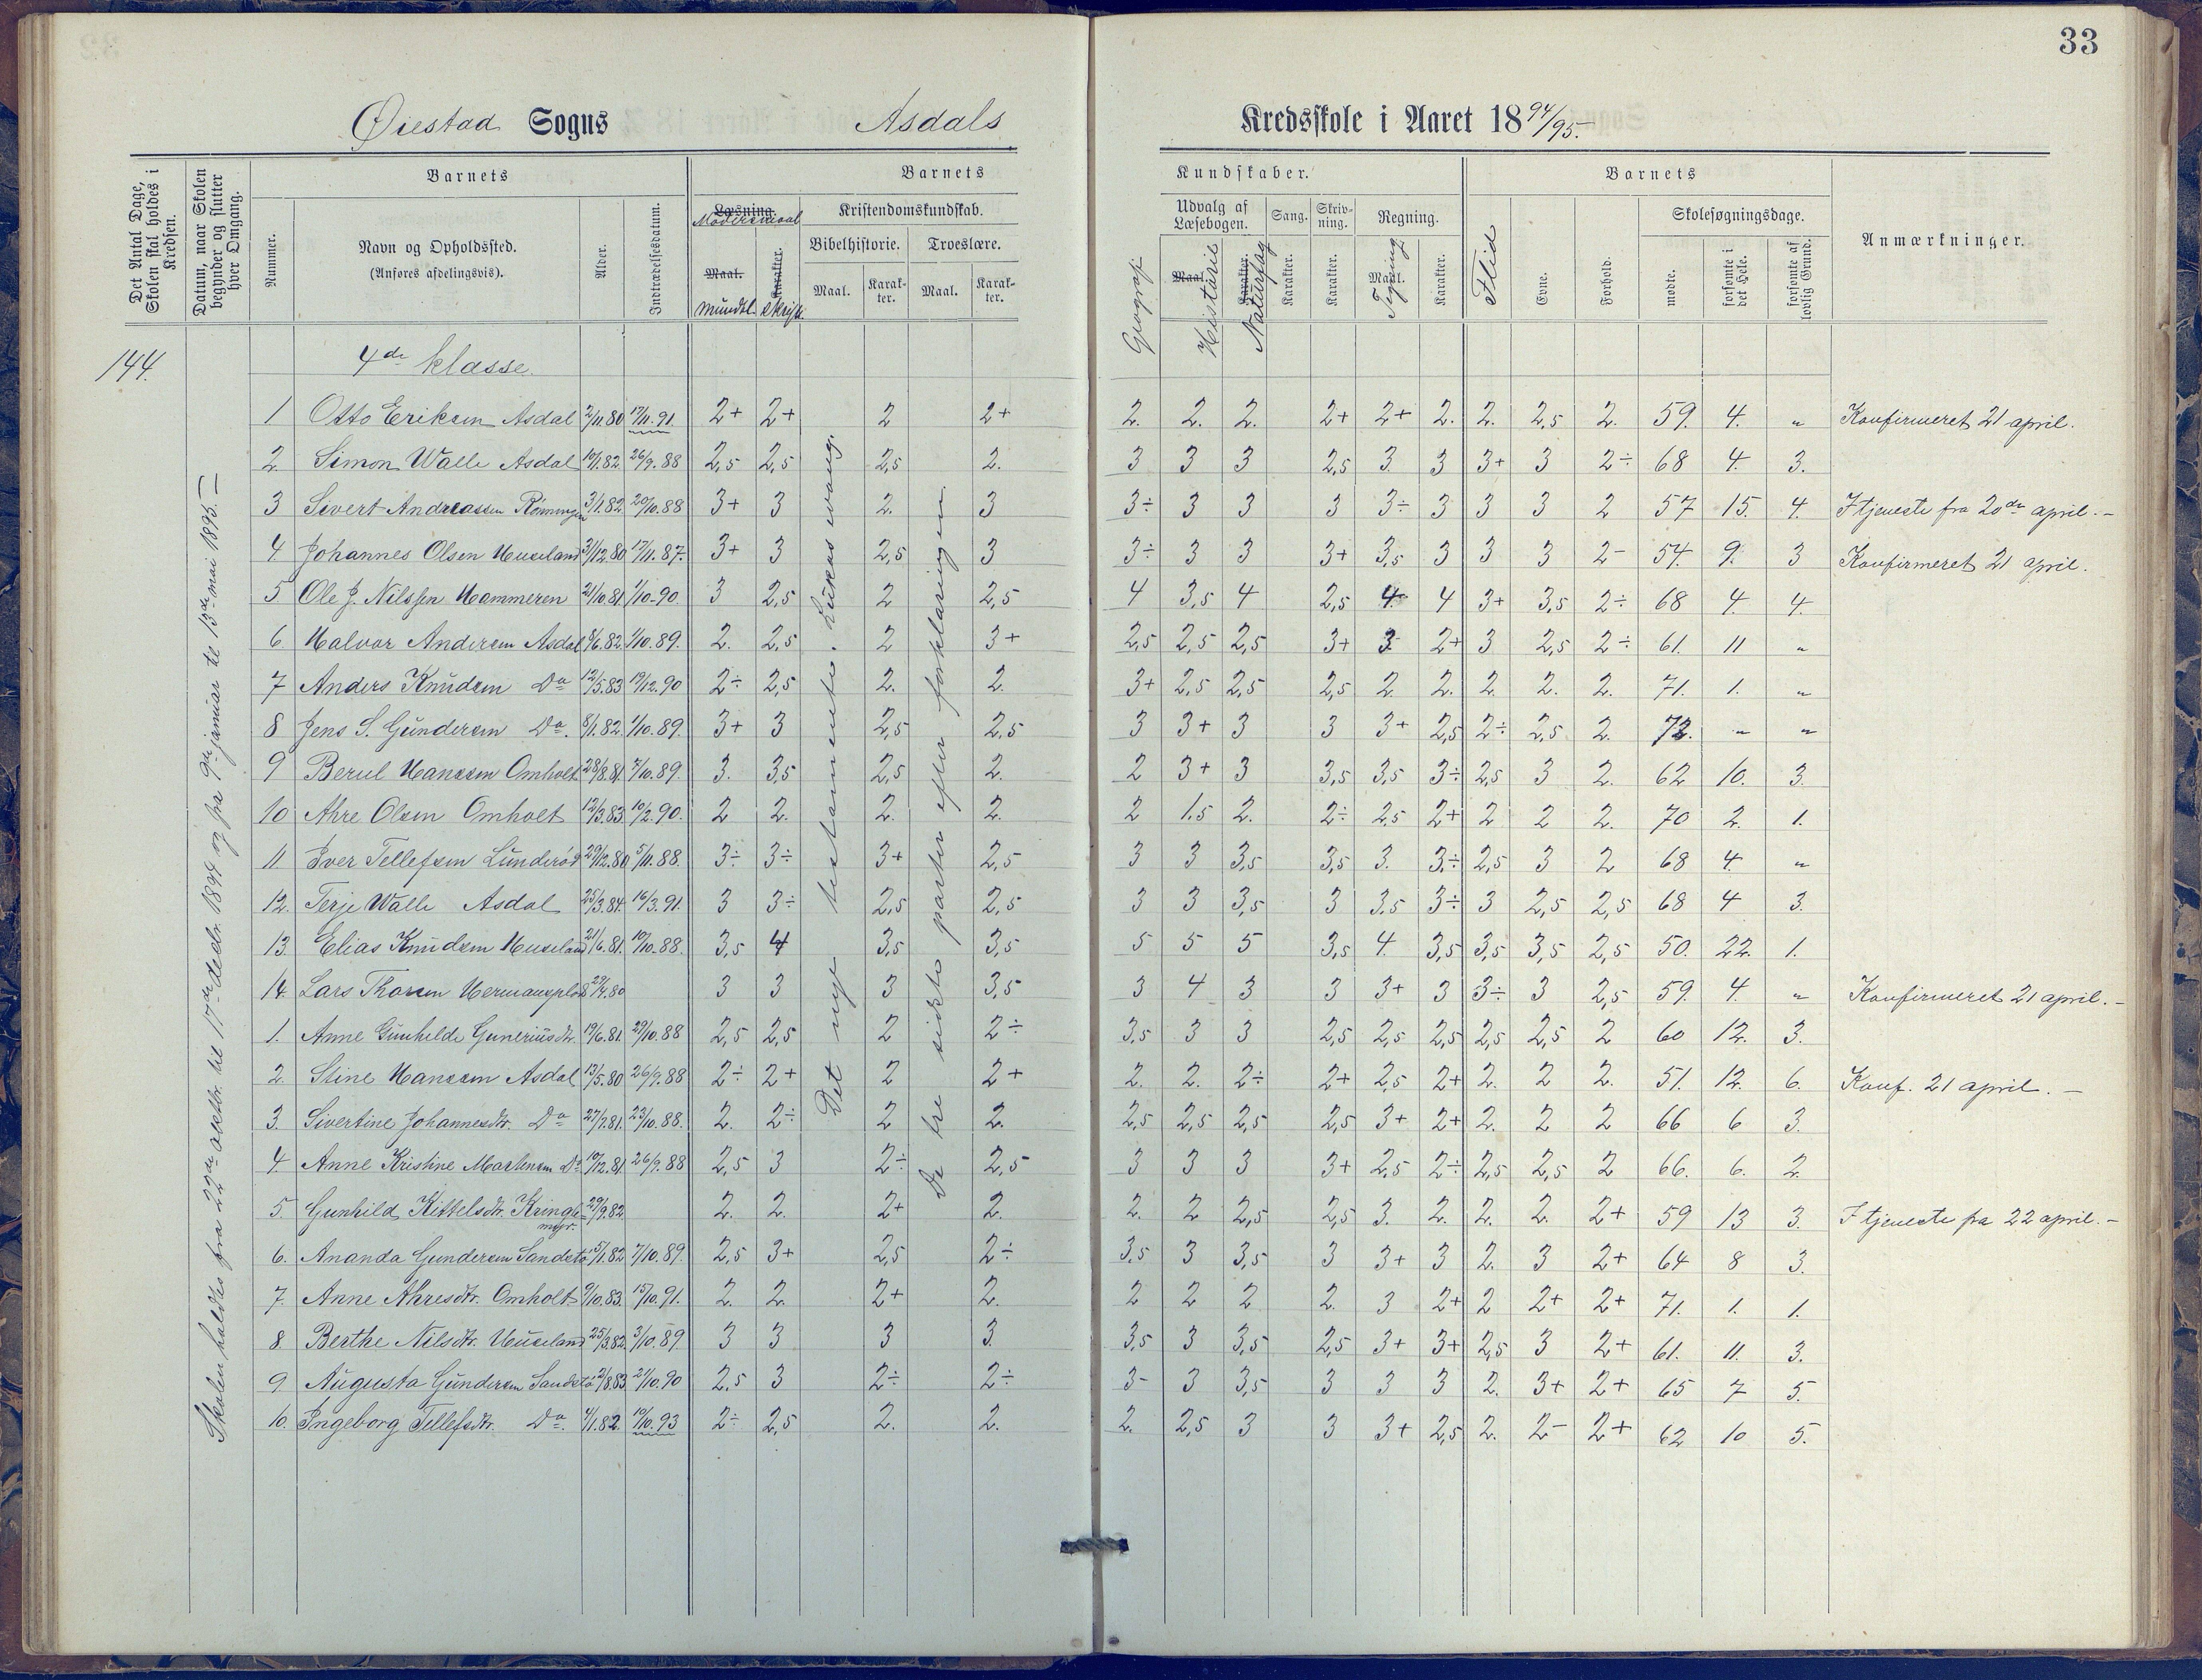 33
Øiestad Sogns Asdals Kredsskole i Aaret 1894/95.
Det Antal Dage, Skolen skal holdes i Kredsen.
Datum, naar Skolen begynder og slutter hver Omgang.
Barnets
Nummer.
Navn og Opholdssted.
(Anføres afdelingsvis).
Alder.
Indtrædelsesdatum.
Barnets Kundskaber.
Læsning. Modersmaal
Maal. mundtl.
Karakter. skriftl.
Kristendomskundskab.
Bibelhistorie.
Maal.
Karakter.
Troeslære.
Maal.
Karakter.
Geografi
Udvalg af Læsebogen.
Maal Historie
Karakter. Naturfag
Sang.
Karakter.
Skrivning.
Karakter.
Regning.
Maal. Tegning
Karakter.
Barnets
Flid
Evne.
Forhold.
Skolesøgningsdage.
mødte.
forsømte i det Hele.
forsømte af lovlig Grund.
Anmærkninger.
144.
4de klasse.
Skolen holdes fra 22de oktbr. til 17de decbr. 1894 og fra 9de januar til 13de mai 1895. –
Det nye testamente. Lukas evang.
De tre sidste parter efter forklaringen.
1 Otto Eriksen Asdal 2/11.80 17/11.91. 2+ 2+ 2 2+ 2. 2. 2. 2+ 2+ 2. 2. 2,5 2. 59. 4. " Konfirmeret 21 april.
2. Simon Walle Asdal 10/1.82. 26/9.88 2,5 2,5 2,5 2. 3 3 3 2,5 3. 3 3+ 3 2÷ 68 4. 3.
3 Sivert Andreassen Rønningen 3/1.82. 20/10.88 3+ 3 2. 3 3÷ 3 3 3 3÷ 3 3 3 2 57 15. 4. I tjeneste fra 20de april. –
4 Johannes Olsen Huseland 31/12.80 17/11.87. 3+ 3 2,5 3 3÷ 3 3 3+ 3,5 3 3 3 2- 54. 9. 3 Konfirmeret 21 april.
5 Ole J. Nilssen Hammeren 21/10.81 1/10-90. 3 2,5 2 2,5 4 3,5 4 2,5 4. 4 3+ 3,5 2÷ 68 4. 4.
6. Halvor Andersen Asdal 8/6.82. 1/10.89. 2. 2,5 2 3+ 2,5 2,5 2,5 3+ 3 2+ 3 2,5 2÷ 61. 11 "
7 Anders Knudsen Do 12/5.83 19/12.90 2÷ 2,5 2. 2. 3+ 2,5 2,5 2,5 2. 2. 2. 2. 2. 71. 1. "
8 Jens S. Gundersen Do. 8/1.82. 1/10.89. 3+ 3 2,5 2,5 3 3+ 3 3 3+ 2,5 2÷ 2,5 2. 72. " "
9 Berul Hanssen Omholt 28/8.81. 7/10.89. 3. 3,5 2,5 2. 2 3+ 3 3,5 3,5 3÷ 2,5 3 2. 62 10. 3.
10 Ahre Olsen Omholt 12/3.83. 10/2.90. 2 2. 2. 2. 2 1,5 2. 2÷ 2,5 2+ 2 2 2. 70 2. 1.
11 Iver Tellefsen Lunderød 29/12.80 5/11.88. 3÷ 3÷ 3+ 2,5 3 3 3,5 3,5 3. 3÷ 2,5 3 2 68 4. "
12. Terje Walle Asdal 25/3.84. 16/3.91. 3 3÷ 2,5 2,5 3 3 3,5 3 3,5 3÷ 3 2,5 2,5 68 4 3.
13. Elias Knudsen Huseland 21/6.81. 10/10.88. 3,5 4 3,5 3,5 5 5 5 3,5 4. 3,5 3,5 3,5 2,5 50. 22. 1.
14. Lars Thorsen Hermansplads 29/4.80 3 3 3 3,5 3 4 3 3 3+ 3 3÷ 3 2,5 59. 4. " Konfirmeret 21 april. –
1. Anne Gunhilde Guneriusdtr. 19/6.81. 29/10.88 2,5 2,5 2 2÷ 3,5 3 3 2,5 2,5 2,5 2,5 2,5 2 60 12. 3.
2. Stine Hanssen Asdal 13/5.80 26/9.88 2÷ 2+ 2 2+ 2. 2. 2÷ 2+ 2,5 2+ 2. 2 2. 51. 12. 6. Konf. 21 april. –
3. Sivertine Johannesdtr. Do 27/7.81. 23/10.88. 2. 2÷ 2 2. 2,5 2,5 2,5 2,5 3+ 2+ 2. 2 2 66 6 3.
4. Anne Kristine Martinsen Do 10/12.81 26/9.88 2,5 3 2÷ 2,5 3 3 3 3+ 2,5 2÷ 2,5 2,5 2 66. 6. 2.
5. Gunhild Kittelsdtr. Kringlemyr. 29/9.82. 2. 2. 2+ 2. 2. 2 2,5 2,5 3. 2. 2. 2. 2+ 59 13 3. I tjeneste fra 22 april. –
6. Ananda Gundersen Sandstø 5/1.82 7/10.89. 2,5 3+ 2,5 2÷ 3,5 3 3,5 3 3+ 3 2. 3 2+ 64 8 3.
7. Anne Ahresdtr. Omholt 9/10.83. 15/10.91. 2. 2. 2+ 2. 2 2 2 2. 3 2+ 2 2+ 2+ 71. 1. 1.
8. Berthe Nilsdtr. Huseland 25/3.82. 3/10.89 3 3 3 3. 3,5 3 3,5 2,5 3+ 3+ 2,5 3 2+ 61. 11. 3.
9 Augusta Gundersen Sandstø 2/8.83. 21/10.90 2,5 3 2÷ 2÷ 3- 3 3,5 3 3 3 2. 3+ 2+ 65 7 5.
10. Ingeborg Tellefsdtr. Do. 4/1.82. 10/10.93 2÷ 2,5 2. 2. 2. 2,5 3 3 3+ 2,5 2. 2- 2+ 62 10 5.